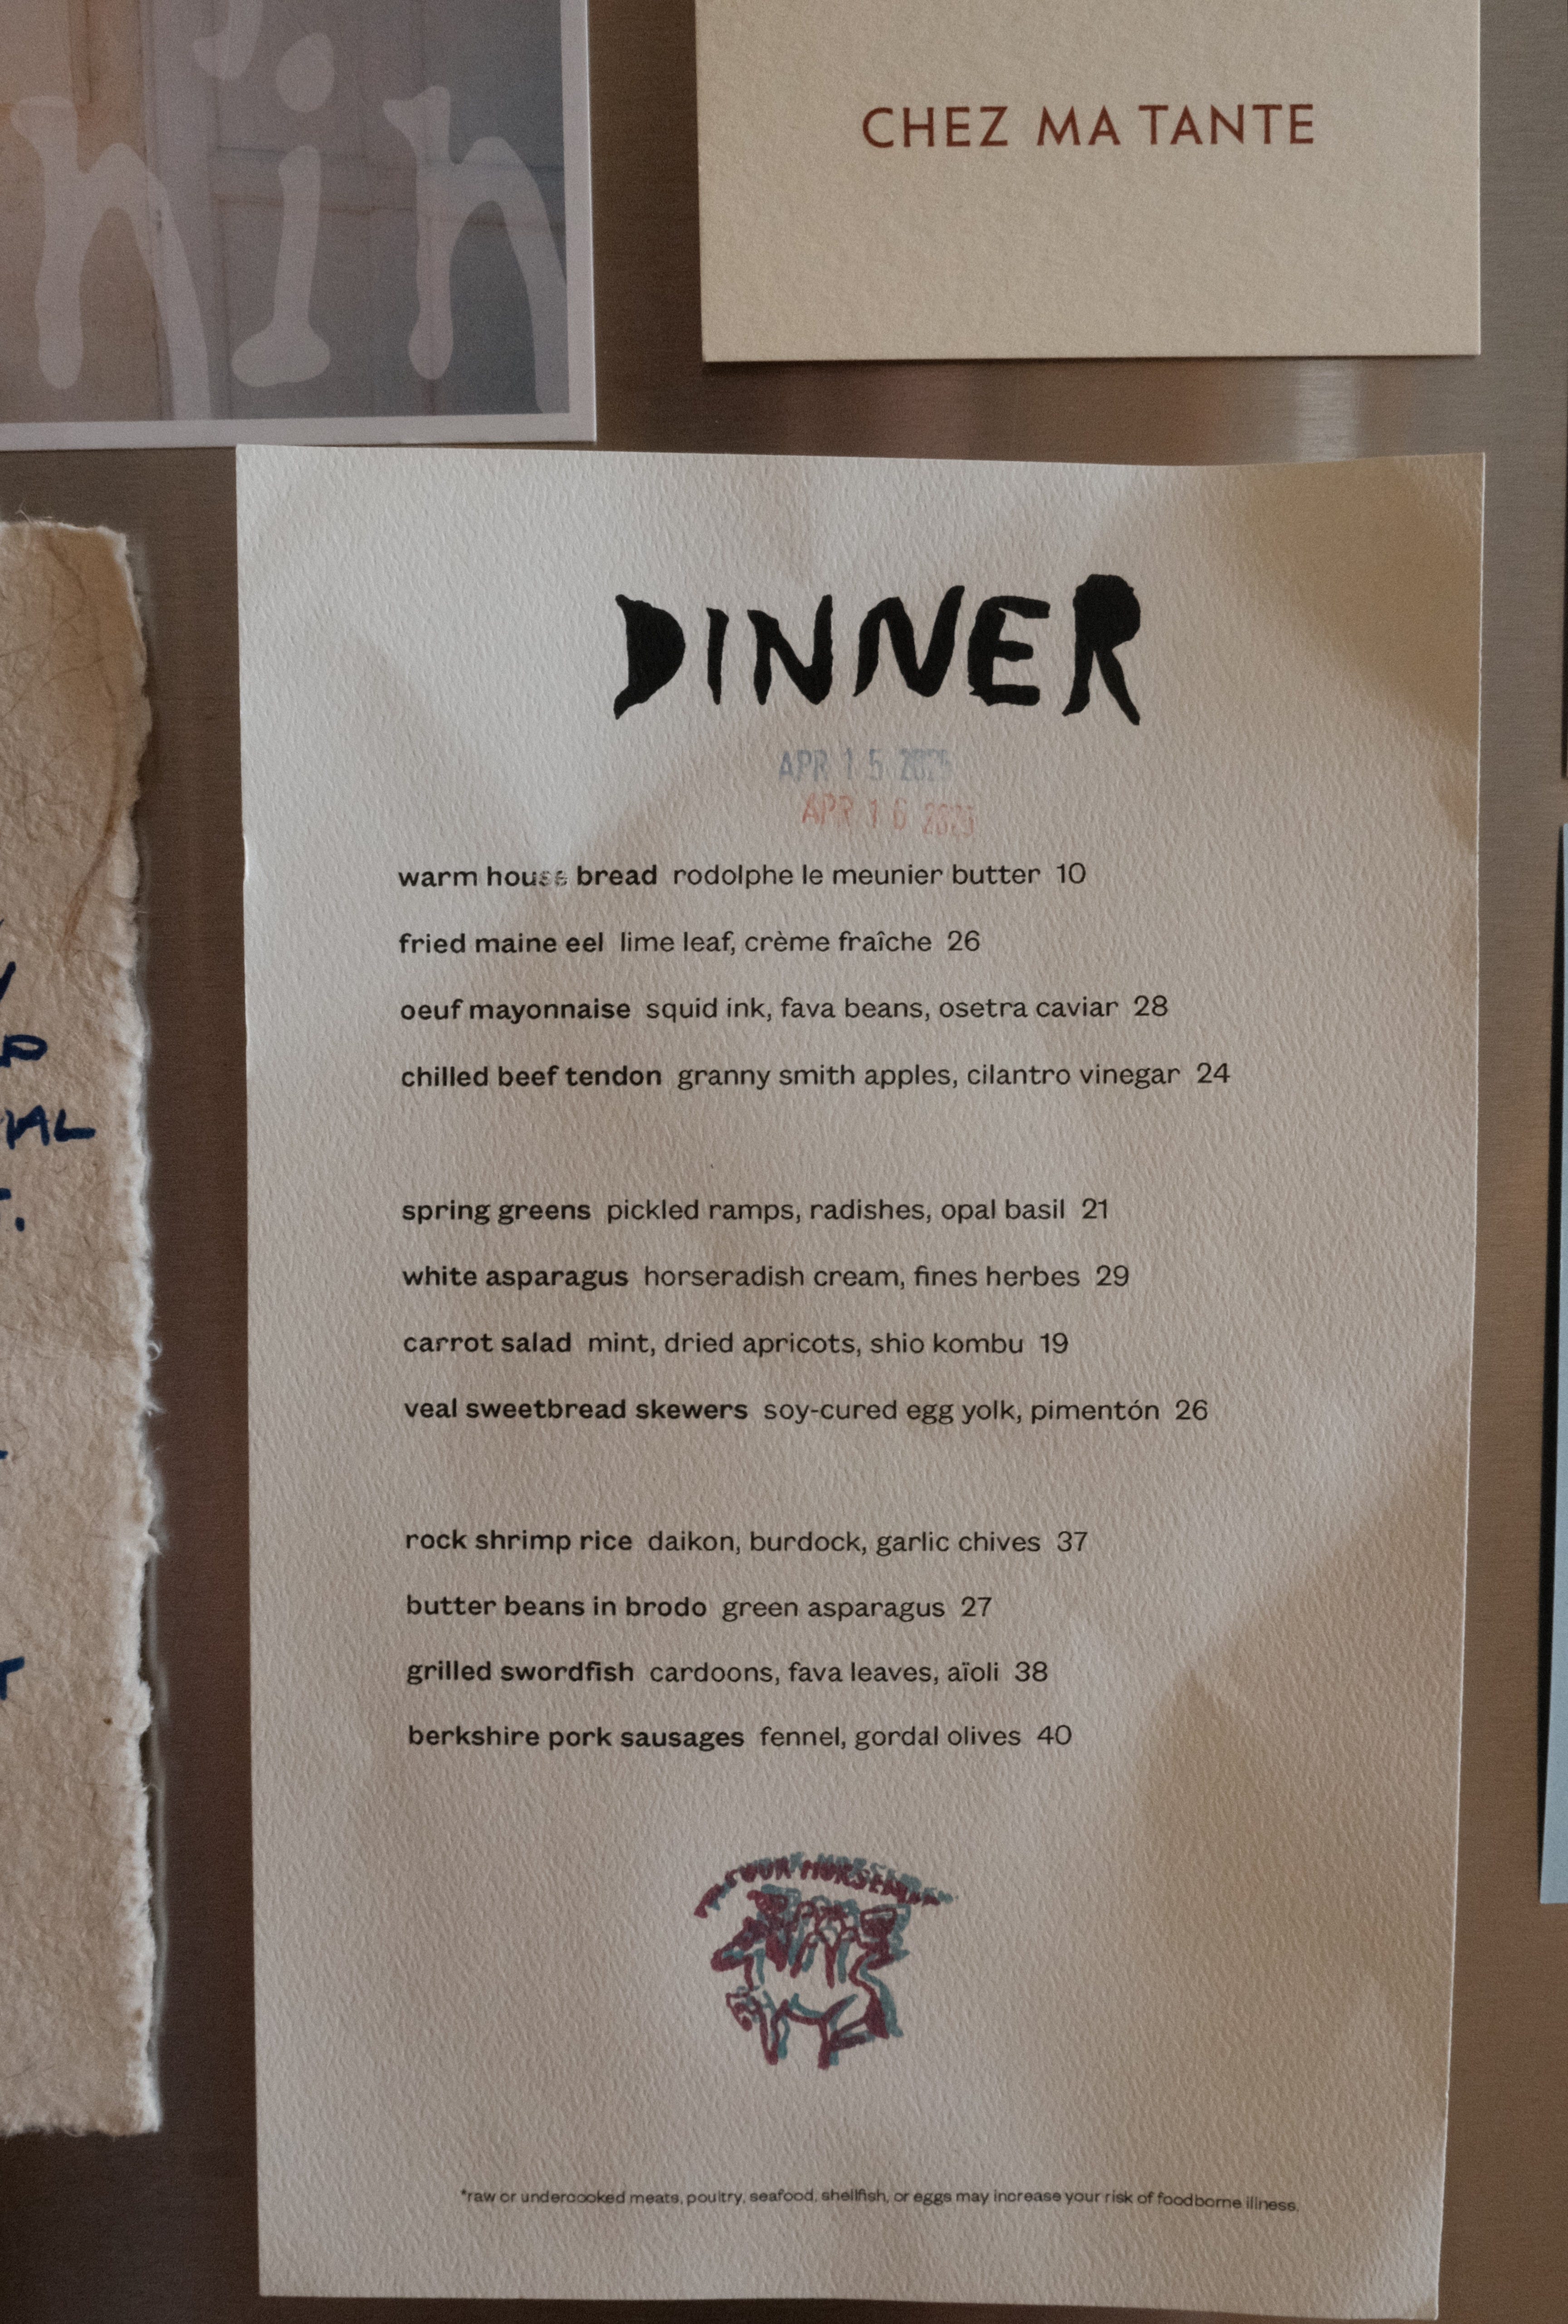 nin
CHEZ MA TANTE
DINNER
APR 15 2025
APR 16 2025
warm house bread rodolphe le meunier butter 10
fried maine eel lime leaf, crème fraîche 26
oeuf mayonnaise squid ink, fava beans, osetra caviar 28
chilled beef tendon granny smith apples, cilantro vinegar 24
spring greens pickled ramps, radishes, opal basil 21
white asparagus horseradish cream, fines herbes 29
carrot salad mint, dried apricots, shio kombu 19
veal sweetbread skewers soy-cured egg yolk, pimentón 26
rock shrimp rice daikon, burdock, garlic chives 37
butter beans in brodo green asparagus 27
grilled swordfish cardoons, fava leaves, aïoli 38
berkshire pork sausages fennel, gordal olives 40
FOUR HORSEMEN
*raw or undercooked meats, poultry, seafood, shellfish, or eggs may increase your risk of foodborne illness.